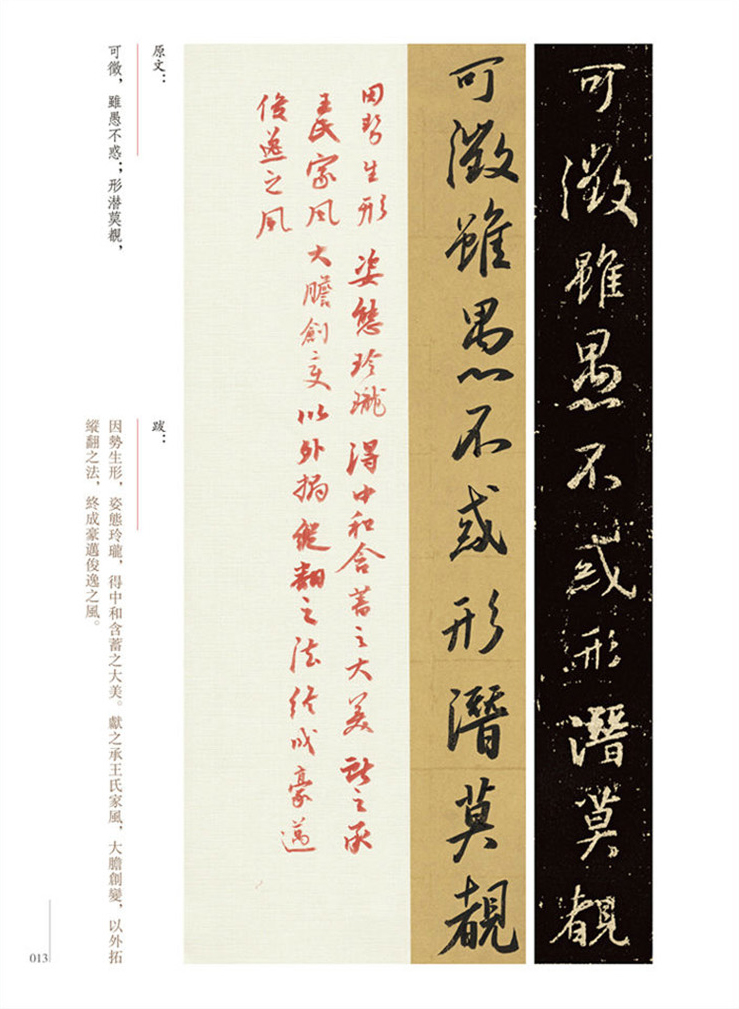 可徵雖愚不惑形潜莫覩
可徵雖愚不或形潛莫覩
因勢生形姿態玲瓏得中和含蓄之大美獻之承
王氏家風大膽創变以外拓縱翻之法終成豪邁
俊逸之風
原文：
可徵，雖愚不惑；形潜莫覩，
跋：
因勢生形，姿態玲瓏，得中和含蓄之大美。獻之承王氏家風，大膽創變，以外拓
縱翻之法，終成豪邁俊逸之風。
013